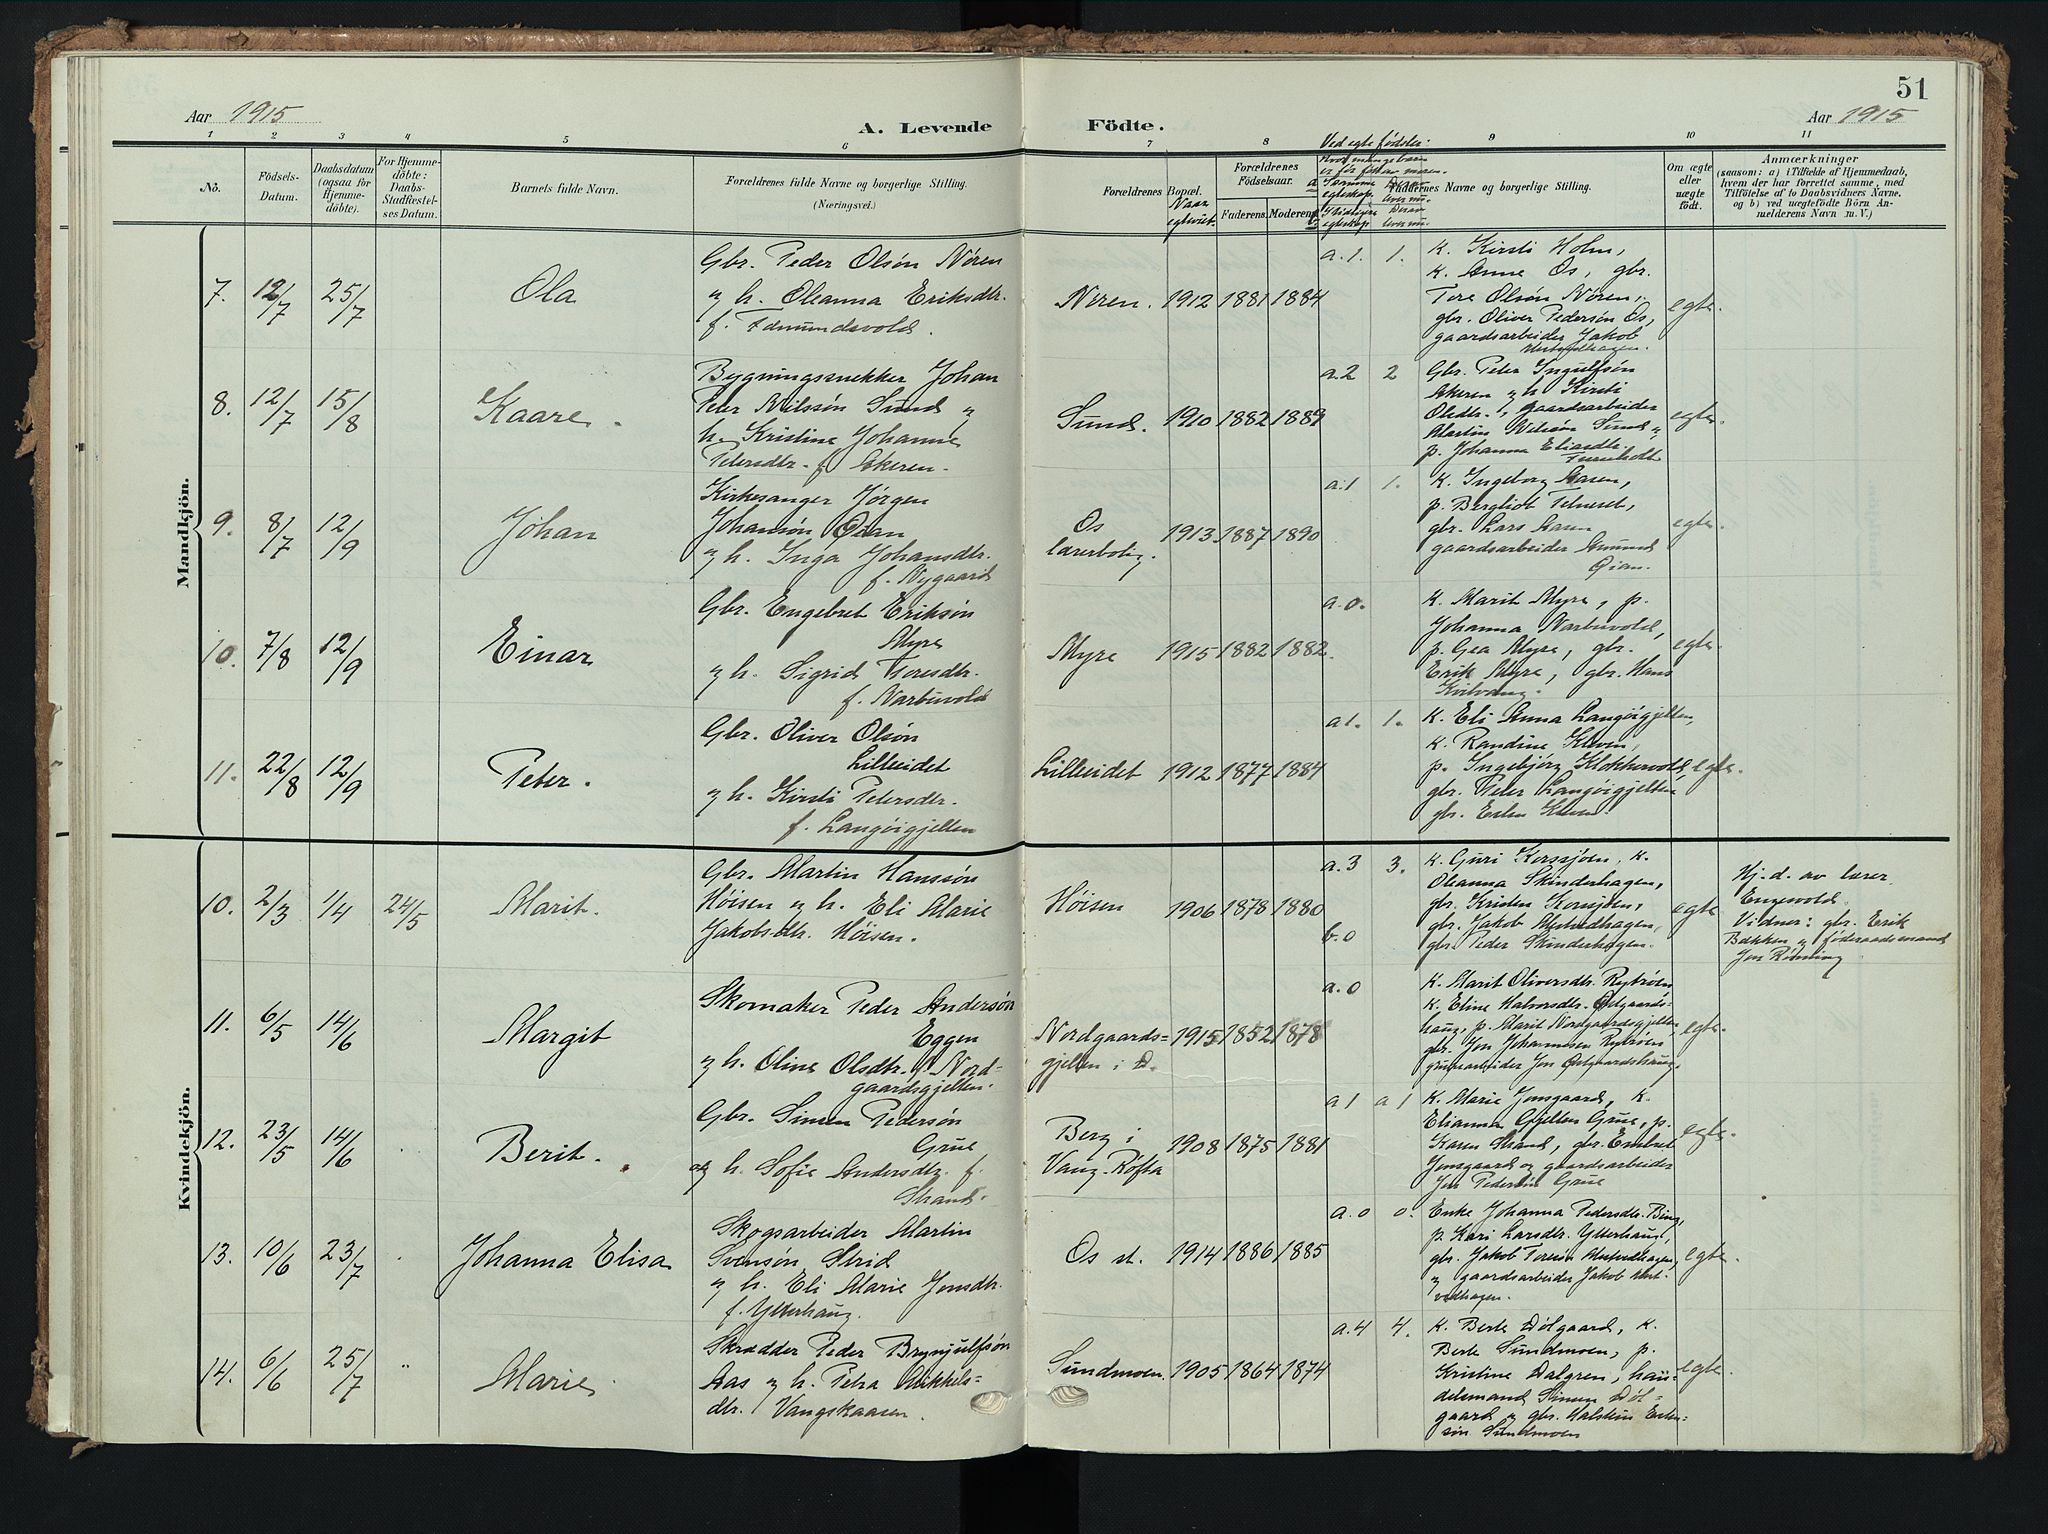 51
Aar 1915
A. Levende Födte.
Aar 1915
1 2 3 4 5 6 7 8 9 10 11
No.
Födsels-
Datum.
Daabsdatum
(ogsaa for
Hjemme-
döbte).
For Hjemme-
döbte:
Daabs-
Stadfæstel-
ses Datum.
Barnets fulde Navn.
Forældrenes fulde Navne og borgerlige Stilling.
(Næringsvei.)
Forældrenes Bopæl.
Naar
egteviet.
Forældrenes
Födselsaar.
Faderens. Moderens.
Ved egte fødsler:
Faddernes Navne og borgerlige Stilling.
Om ægte
eller
uægte
födt.
Anmærkninger
(saasom: a) i Tilfælde af Hjemmedaab,
hvem der har forrettet samme, med
Tilföielse af to Daabsvidners Navne.
og b) ved uægtefödte Börn An-
melderens Navn m. V.)
Mandkjön.
7. 12/7 25/7 Ola
Gbr. Peder Olsøn Nøren
og h. Oleanna Eriksdtr.
f. Edmundsvold.
Nøren. 1912 1881 1884
a.1. 1.
K. Kirsti Holm,
K. Anne Os, gbr.
Tore Olsøn Nøren,
gbr. Oliver Pedersøn Os,
gaardsarbeider Jakob
egte.
8. 12/7 15/8 Kaare.
Bygningssnekker Johan
Peter Nilssøn Sund og
h. Kristine Johanne
Petersdtr. f. Akeren.
Sund. 1910 1882 1889
a.2 2
Gbr. Peter Ingulfsøn
Akeren og h. Kirsti
Olsdtr., gaardsarbeider
Martin Nilsøn Sund og
p. Johanna Eliasdtr.
egte.
9. 8/7 12/9 Johan
Kirkesanger Jørgen
Johansøn Øian
og h. Inga Johansdtr.
f. Nygaard
Os
lærerbolig. 1913 1887 1890
a.1 1.
K. Ingeborg Aasen,
p. Bergliot Telneset,
gbr. Lars Aasen
gaardsarbeider Amund
Øian.
egte.
10. 7/8 12/9 Einar
Gbr. Engebret Eriksøn
Myre
og h. Sigrid Toresdtr.
f. Narbuvold
Myre 1915 1882 1882
a.0.
K. Marit Myre, p.
Johanna Narbuvold,
p. Gea Myre, gbr.
Erik Myre, gbr. Hans
egte.
11. 22/8 12/9 Peter.
Gbr. Oliver Olsøn
Lilleeidet
og h. Kirsti Petersdtr.
f. Langøigjelten
Lilleeidet 1912 1877 1884
a1. 1.
K. Eli Anna Langøigjelten,
K. Randine Kleven,
p. Ingebjørg Klokkervold,
gbr. Peter Langøigjelten
gbr. Esten Kleven.
egte.
Kvindekjön.
10. 2/3 1/4 24/5 Marit.
Gbr. Martin Hanssøn
Høisen og h. Eli Marie
Jakobsdtr. Høisen.
Høisen 1906 1878 1880
a.3 3.
b.0
K. Guri Korssjøen, K.
Oleanna Skinderhagen,
gbr. Kristen Korssjøen,
gbr. Jakob Mastvedhagen,
gbr. Peder Skinderhagen.
egte
Hj.d. av lærer
Engesvold.
Vidner: gbr. Erik
Bækken og føderaadsmand
Jon Rønning
11. 6/5 14/6 Margit
Skomaker Peder Andersøn
Eggen
og h. Oline Olsdtr. f. Nord-
gaardsgjelten.
Nordgaards-
gjelten i D. 1915 1852 1878
a.0
K. Marit Oliversdtr. Røbrøen
K. Eline Halvorsdtr. Østgaards-
haug, p. Marit Nordgaardsgjelten,
gbr. Jon Johannesen
grubearbeider Jon Østgaardshaug.
egte.
12. 23/5 14/6 Berit.
Gbr. Simen Pedersøn
Grue
og h. Sofie Andersdtr. f.
Strand.
Berg i
Vang-Røfta 1908 1875 1881
a1 a1
K. Marie Jonsgaard, K.
Elianna Gjelten Grue, p.
Karen Strand, gbr. Embret
Jonsgaard og gaardsarbeider
Jon Pedersøn Grue
egte.
13. 10/6 23/7 Johanna Elisa
Skogsarbeider Martin
Svensøn Strid
og h. Eli Marie Jonsdtr.
f. Ytterhaug.
Os st. 1914 1886 1885
a.0 0.
Enke Johanna Pedersdtr. Bing,
p. Kari Larsdtr. Ytterhaug,
gbr. Jakob Toresøn Mastvedhagen,
og gaardsarbeider Jakob Mast-
vedhagen.
egte.
14. 6/6 25/7 Marie
Skrædder Peder Brynjulfsøn
Aas og h. Petra Mikkels-
dtr. Vangskaasen.
Sundmoen. 1905 1864 1874
a.4 4.
K. Berte Dølgaard, K.
Berte Sundmoen, p.
Kristine Dalgren, han-
delsmand Simen Døl-
gaard og gbr. Halstein Esten-
søn Sundmoen
egte.